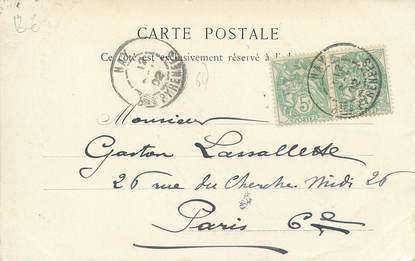 CARTE POSTALE
Ce côté est exclusivement réservé à l'ad
NAY
12
02
PYRENEES
5
NAY
PYRENEES
Monsieur
Gaston Lassallette
26 rue du Cherche Midi 26
Paris 6e